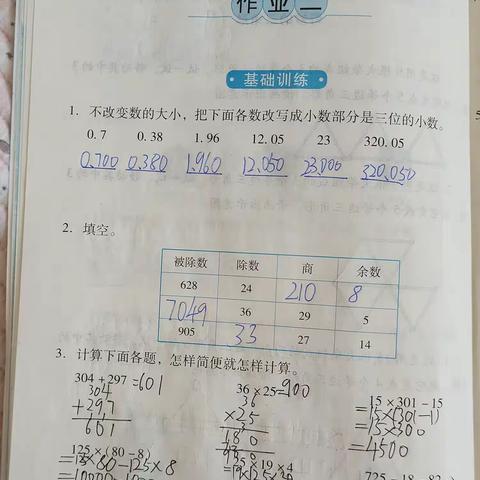 作业二
基础训练
1. 不改变数的大小，把下面各数改写成小数部分是三位的小数。
0.7 0.38 1.96 12.05 23 320.05
0.700 0.380 1.960 12.050 23.000 320.050
2. 填空。
被除数 除数 商 余数
628 24 210 8
7049 36 29 5
905 33 27 14
3. 计算下面各题，怎样简便就怎样计算。
304 + 297 =601 36 × 25=900 15 × 301 - 15
304 36 =15×(301-1)
+297 ×25 =15×300
601 180 =4500
125 × (80 - 8) 25 × 19 × 4
=125×80-125×8